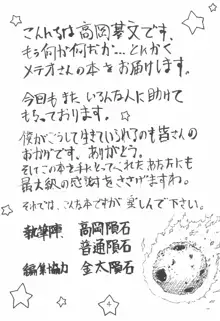 こんちは高岡基文です。
もう何が何だか…とにかく
メテオさんの本をお届けします。
今回もまたいろんな人に助けて
もらっております。
僕がこうして生きていられるのも皆さんの
おかげです、ありがとう。
そしてこの本を手にとってくれたあなたにも
最大級の感謝をささげますわ。
それでは、こんな本ですが楽しんで下さい。
執筆陣 高岡隕石
普通隕石
編集協力 金太隕石
4